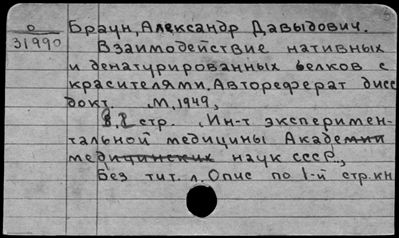 о
31990
Браун, Александр Давыдович.
Взаимодействие нативных
и денатурированных белков с
красителями. Автореферат дисс
докт. М, 1949,
8 стр. (Ин-т эксперимен-
тальной медицины Академии
медицинских наук СССР.,
Без тит. л. Опис по 1-й стр. кн